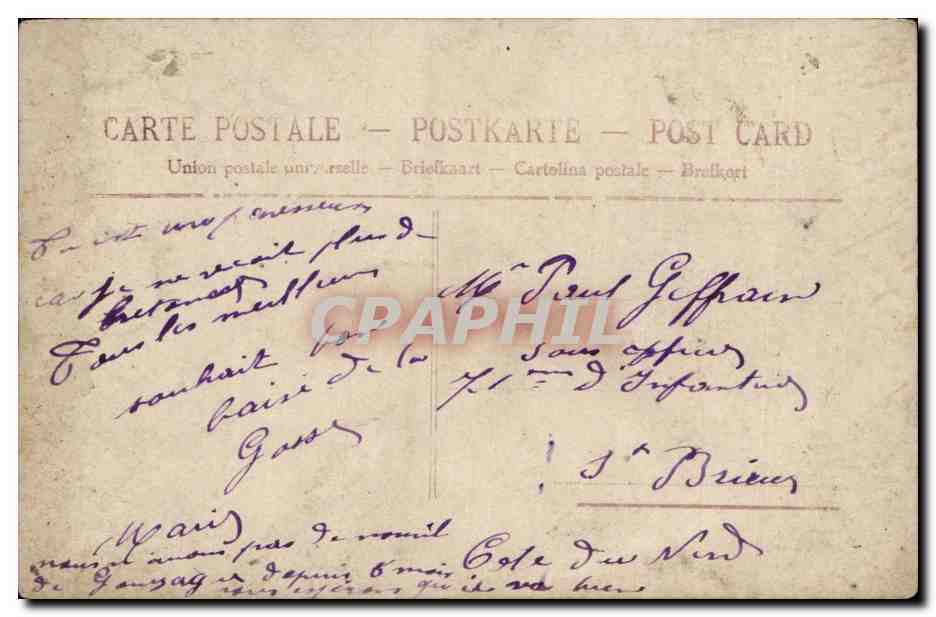 CARTE POSTALE — POSTKARTE — POST CARD
Union postale universelle — Briefkaart — Cartolina postale — Brefkort
car je ne reçoit plus d
Tous les meilleurs
souhait bon
baisé de la
Gosse
Marie
nous n'avons pas de nouvel
de Gonzague depuis 6 mois
nous esperons qu'il va bien
Mr Paul Geffrain
sous officier
71 eme d'Infantrie
St Brieuc
Cote du Nord
CPAPHIL